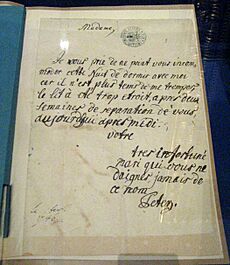 Madame
Je vous prie de ne point vous incom
moder cette Nuit de dormir avec moi
car il n'est plus tems de me tromper
le lit a été trop etroit, apres deux
semaines de separation de vous
aujourd'hui apres midi
Votre
tres infortuné
mari qui vous ne
daignez jamais de
ce nom
Peter